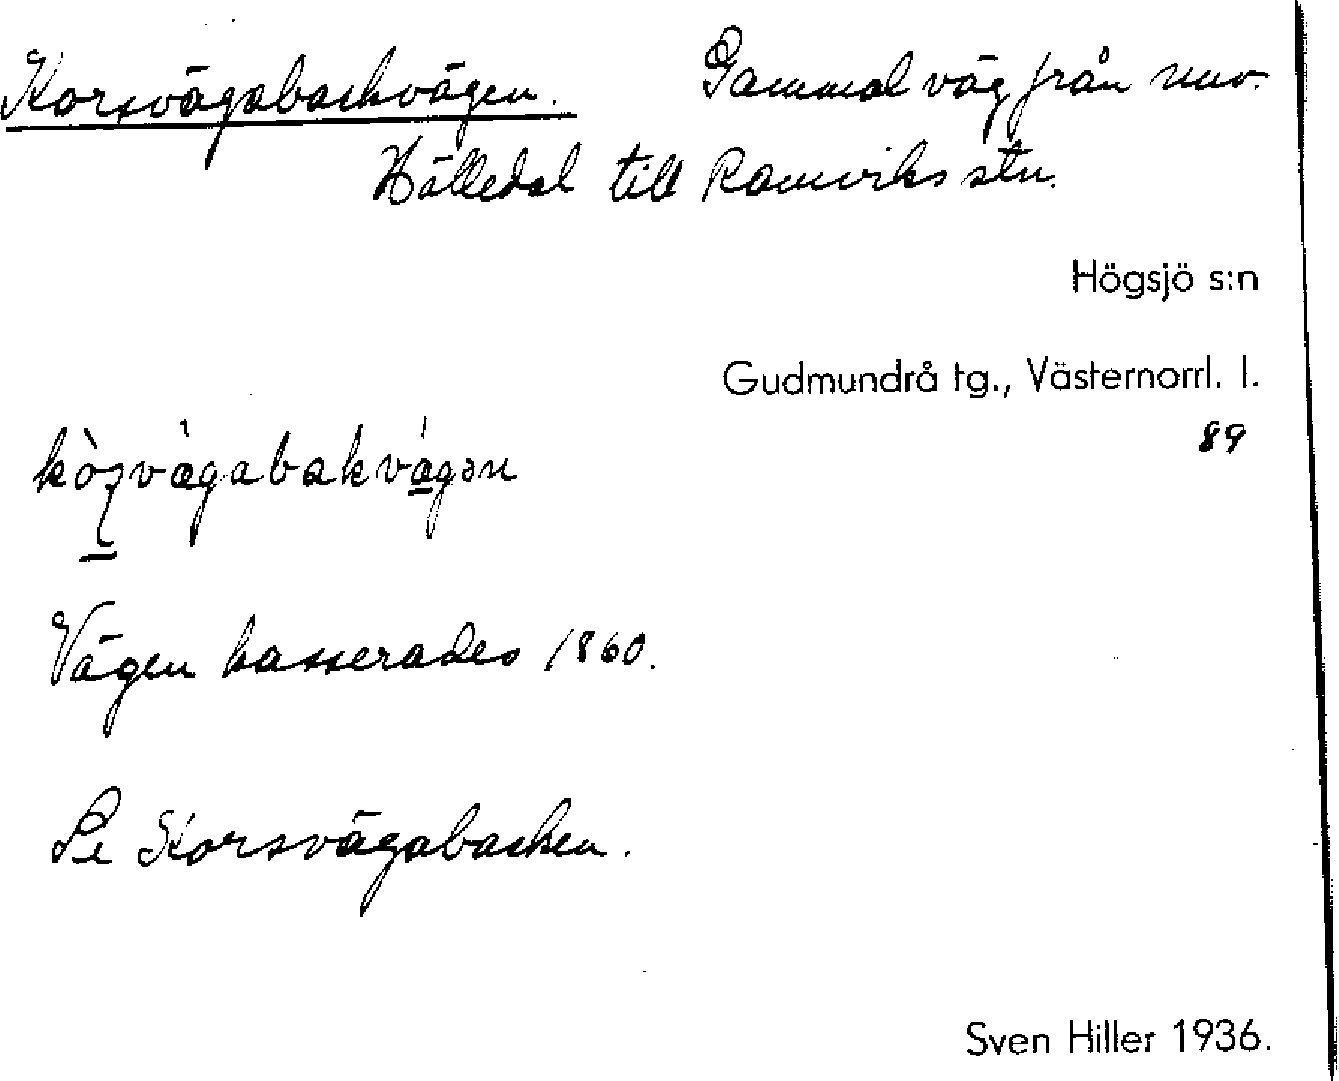 Korsvägabackvägen. Gammal väg från nuv.
Hälledal till Ramviks stn.
Högsjö s:n
Gudmundrå tg., Västernorrl. l.
89
Vägen kasserades 1860.
Se Korsvägabacken.
Sven Hiller 1936.